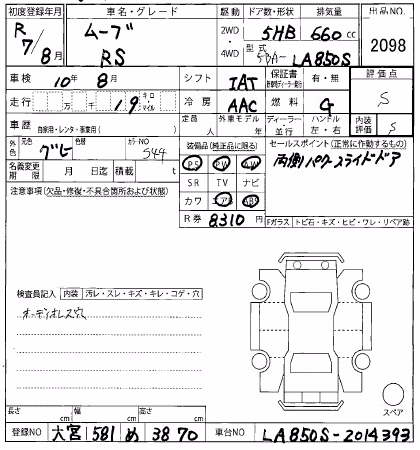 初度登録年月 車名・グレード 駆動 ドア数・形状 排気量 出品NO.
R 7/8月 ムーブ 2WD 5HB 660cc 2098
RS 4WD 型式 5DA- LA850S
車検 10年8月 シフト IAT 保証書 有・無 評価点
走行 万 千 19 キロ マイル 冷房 AAC 燃料 G S
車歴 自家用・レンタ・事業用( ) 定員 人 外車モデル 年 ディーラー・並行 ハンドル 左・右 内装評価 S
外色 元色 グレー 色替 カラーNO S44 装備品(純正品に限る) セールスポイント(正常に作動するもの)
PS PW AW 両側パワースライドドア
名義変更期限 月 日迄 積載 t SR TV ナビ
注意事項(欠品・修復・不具合箇所および状態) カワ エアB ABS
R券 8310円 Fガラス トビ石・キズ・ヒビ・ワレ・リペア跡
検査員記入 内装 汚レ・スレ・キズ・キレ・コゲ・穴
オーディオレス穴
スペア
長さ cm 幅 cm 高さ cm
登録NO 大宮 581 め 3870 車台NO LA850S-2014393